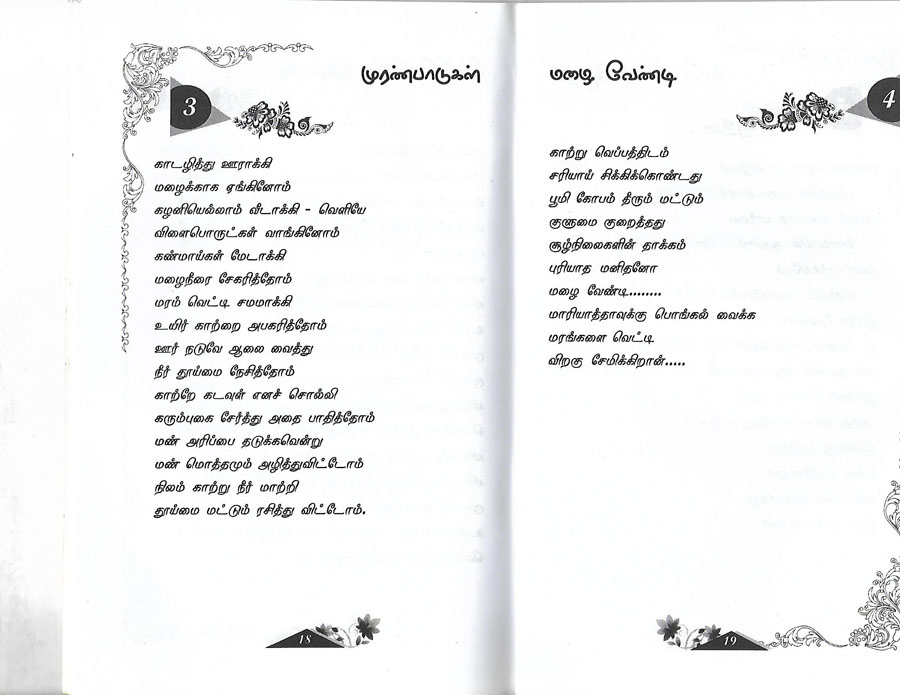 முரண்பாடுகள்
3
காடழித்து ஊராக்கி
மழைக்காக ஏங்கினோம்
கழனியெல்லாம் வீடாக்கி - வெளியே
விளைபொருட்கள் வாங்கினோம்
கண்மாய்கள் மேடாக்கி
மழைநீரை சேகரித்தோம்
மரம் வெட்டி சமமாக்கி
உயிர் காற்றை அபகரித்தோம்
ஊர் நடுவே ஆலை வைத்து
நீர் தூய்மை நேசித்தோம்
காற்றே கடவுள் எனச் சொல்லி
கரும்புகை சேர்த்து அதை பாதித்தோம்
மண் அரிப்பை தடுக்கவென்று
மண் மொத்தமும் அழித்துவிட்டோம்
நிலம் காற்று நீர் மாற்றி
தூய்மை மட்டும் ரசித்து விட்டோம்.
18
மழை வேண்டி
4
காற்று வெப்பத்திடம்
சரியாய் சிக்கிக்கொண்டது
பூமி கோபம் தீரும் மட்டும்
குளுமை குறைத்தது
சூழ்நிலைகளின் தாக்கம்
புரியாத மனிதனோ
மழை வேண்டி........
மாரியாத்தாவுக்கு பொங்கல் வைக்க
மரங்களை வெட்டி
விறகு சேமிக்கிறான்.....
19